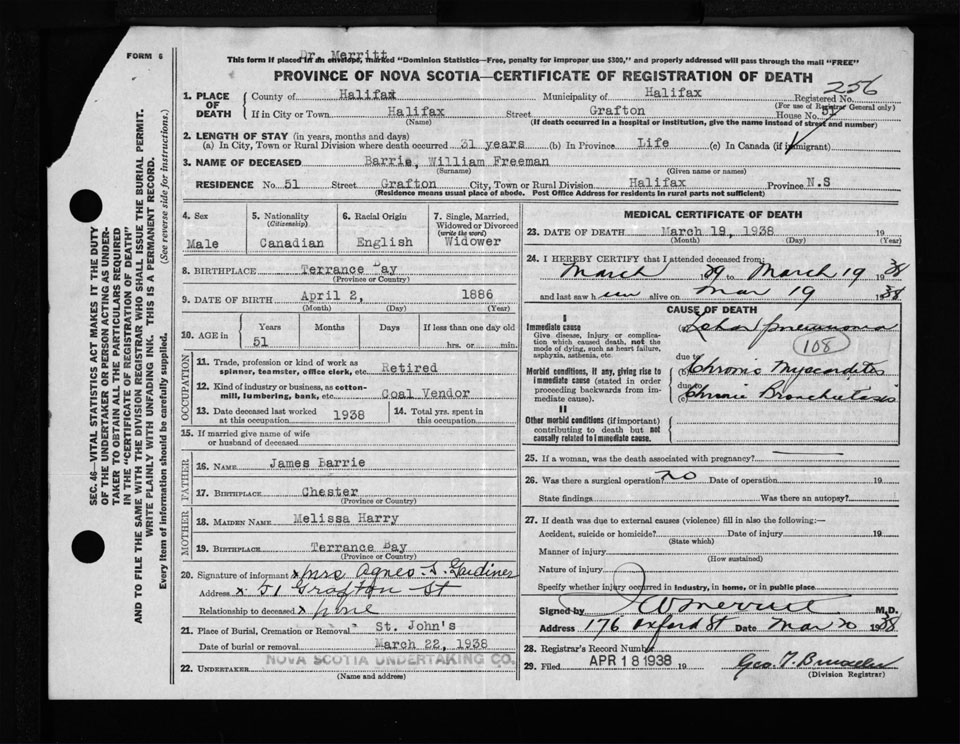 FORM 6
Dr. Merritt
This form if placed in an envelope, marked "Dominion Statistics—Free, penalty for improper use $300," and properly addressed will pass through the mail "FREE"
PROVINCE OF NOVA SCOTIA—CERTIFICATE OF REGISTRATION OF DEATH
256
1. PLACE OF DEATH
County of Halifax Municipality of Halifax Registered No.
(For use of Registrar General only)
If in City or Town Halifax Street Grafton House No. 51
(Name) (If death occurred in a hospital or institution, give the name instead of street and number)
2. LENGTH OF STAY (in years, months and days)
(a) In City, Town or Rural Division where death occurred 31 years (b) In Province Life (c) In Canada (if immigrant)
3. NAME OF DECEASED Barrie, William Freeman
(Surname) (Given name or names)
RESIDENCE No. 51 Street Grafton City, Town or Rural Division Halifax Province N.S
(Residence means usual place of abode. Post Office Address for residents in rural parts not sufficient)
4. Sex
Male
5. Nationality
(Citizenship)
Canadian
6. Racial Origin
English
7. Single, Married, Widowed or Divorced
(write the word)
Widower
8. BIRTHPLACE Terrance Bay
(Province or Country)
9. DATE OF BIRTH April 2, 1886
(Month) (Day) (Year)
10. AGE in
Years Months Days If less than one day old
51 hrs. or min.
OCCUPATION
11. Trade, profession or kind of work as spinner, teamster, office clerk, etc. Retired
12. Kind of industry or business, as cotton-mill, lumbering, bank, etc. Coal Vendor
13. Date deceased last worked at this occupation 1938
14. Total yrs. spent in this occupation
15. If married give name of wife or husband of deceased
FATHER
16. NAME James Barrie
17. BIRTHPLACE Chester
(Province or Country)
MOTHER
18. MAIDEN NAME Melissa Harry
19. BIRTHPLACE Terrance Bay
(Province or Country)
20. Signature of informant x Mrs Agnes S. Gardiner
Address x 51 Grafton St
Relationship to deceased x none
21. Place of Burial, Cremation or Removal St. John's
Date of burial or removal March 22, 1938
22. UNDERTAKER NOVA SCOTIA UNDERTAKING CO.
(Name and address)
MEDICAL CERTIFICATE OF DEATH
23. DATE OF DEATH March 19, 1938 19
(Month) (Day) (Year)
24. I HEREBY CERTIFY that I attended deceased from:
March to March 19 1938
and last saw h im alive on Mar 19 1938
CAUSE OF DEATH
I
Immediate cause
Give disease, injury or complication which caused death, not the mode of dying, such as heart failure, asphyxia, asthenia, etc.
(a) Lobar Pneumonia
108
due to
Morbid conditions, if any, giving rise to immediate cause (stated in order proceeding backwards from immediate cause).
(b) Chronic Myocarditis
due to
(c) Chronic Bronchiectasis
II
Other morbid conditions (if important) contributing to death but not causally related to immediate cause.
25. If a woman, was the death associated with pregnancy?
26. Was there a surgical operation no Date of operation 19
State findings Was there an autopsy?
27. If death was due to external causes (violence) fill in also the following:—
Accident, suicide or homicide? Date of injury 19
(State which)
Manner of injury
(How sustained)
Nature of injury
Specify whether injury occurred in industry, in home, or in public place
Signed by Merritt M.D.
Address 176 Oxford St Date Mar 20 1938
28. Registrar's Record Number
29. Filed APR 18 1938 19 Geo. T.
(Division Registrar)
SEC. 46—VITAL STATISTICS ACT MAKES IT THE DUTY
OF THE UNDERTAKER OR PERSON ACTING AS UNDERTAKER
TO OBTAIN ALL THE PARTICULARS REQUIRED
IN THE "CERTIFICATE OF REGISTRATION OF DEATH"
AND TO FILE THE SAME WITH THE DIVISION REGISTRAR WHO SHALL ISSUE THE BURIAL PERMIT.
WRITE PLAINLY WITH UNFADING INK. THIS IS A PERMANENT RECORD.
Every item of information should be carefully supplied. (See reverse side for instructions.)